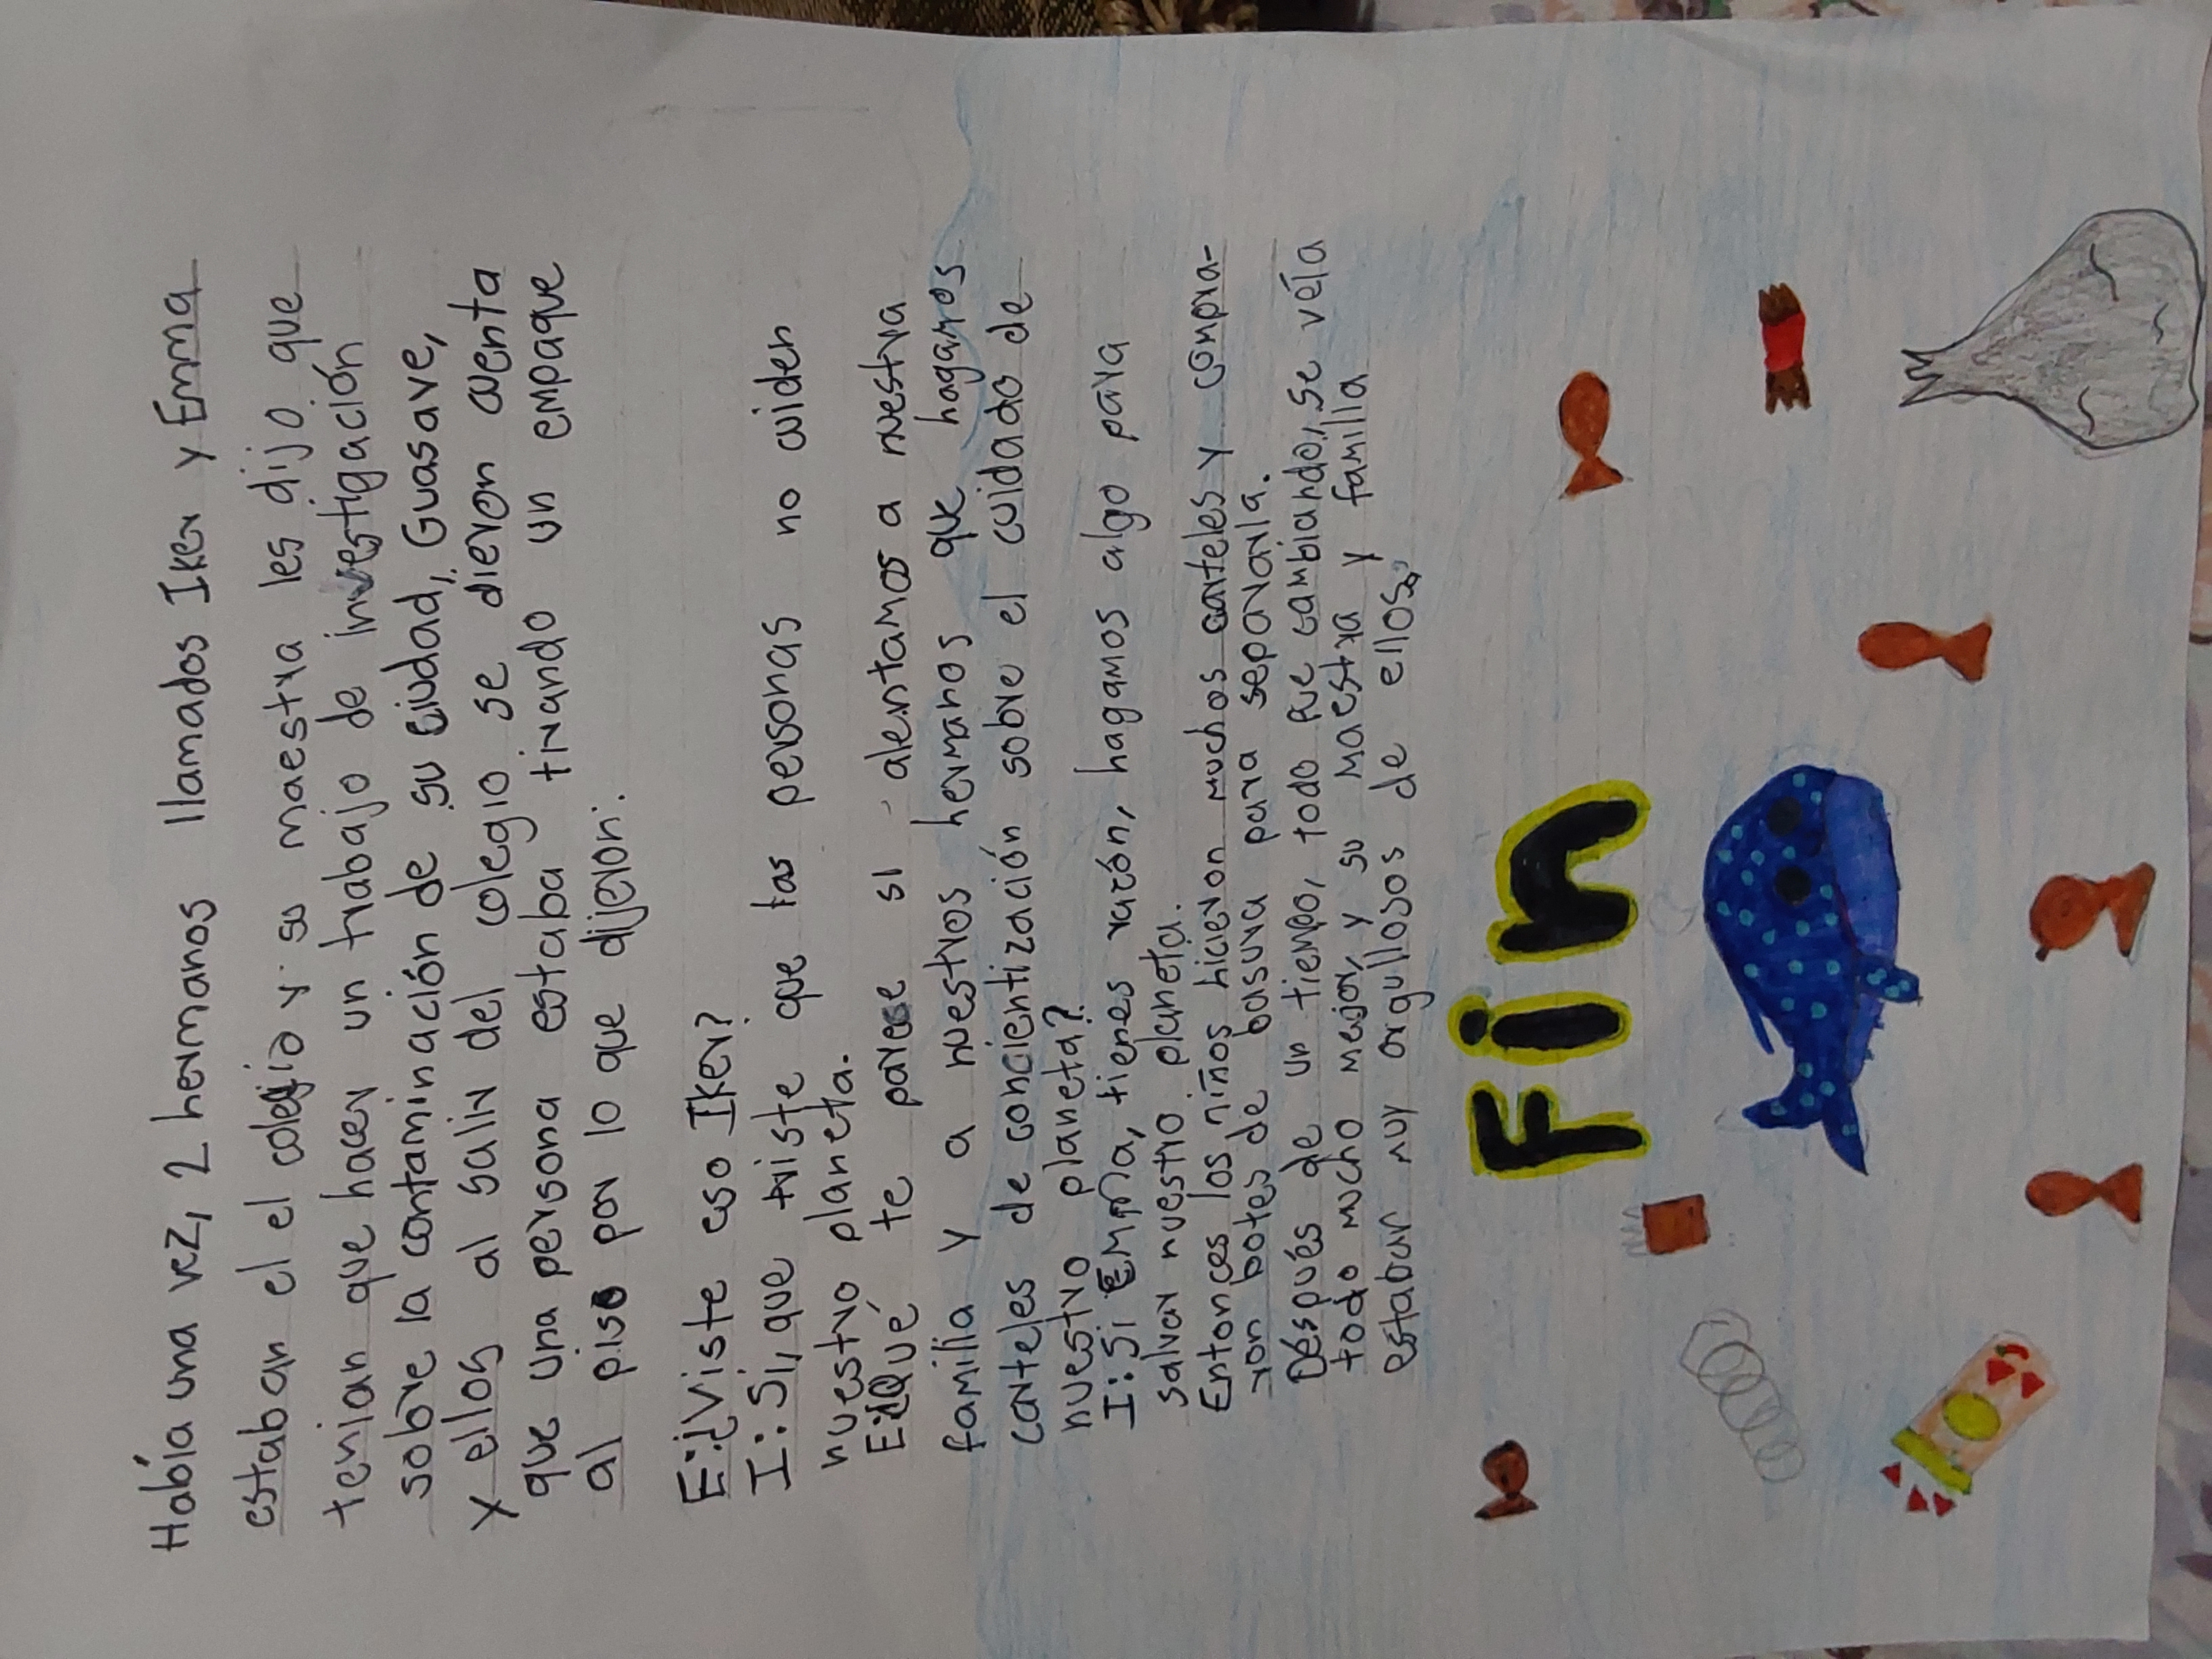 Había una vez, 2 hermanos llamados Iker y Emma
estaban el el colegio y su maestra les dijo que
tenian que hacer un trabajo de investigación
sobre la contaminación de su ciudad, Guasave,
y ellos al salir del colegio se dieron cuenta
que una persona estaba tirando un empaque
al piso por lo que dijeron:
E:¿Viste eso Iker?
I: Si, que triste que las personas no cuiden
nuestro planeta.
E:¿Qué te parece si alentamos a nuestra
familia y a nuestros hermanos que hagamos
carteles de concientización sobre el cuidado de
nuestro planeta?
I: Si Emma, tienes razón, hagamos algo para
salvar nuestro planeta.
Entonces los niños hicieron muchos carteles y compra-
ron botes de basura para separarla.
Después de un tiempo, todo fue cambiando, se veía
todo mucho mejor, y su maestra y familla
estaban muy orgullosos de ellos.
Fin